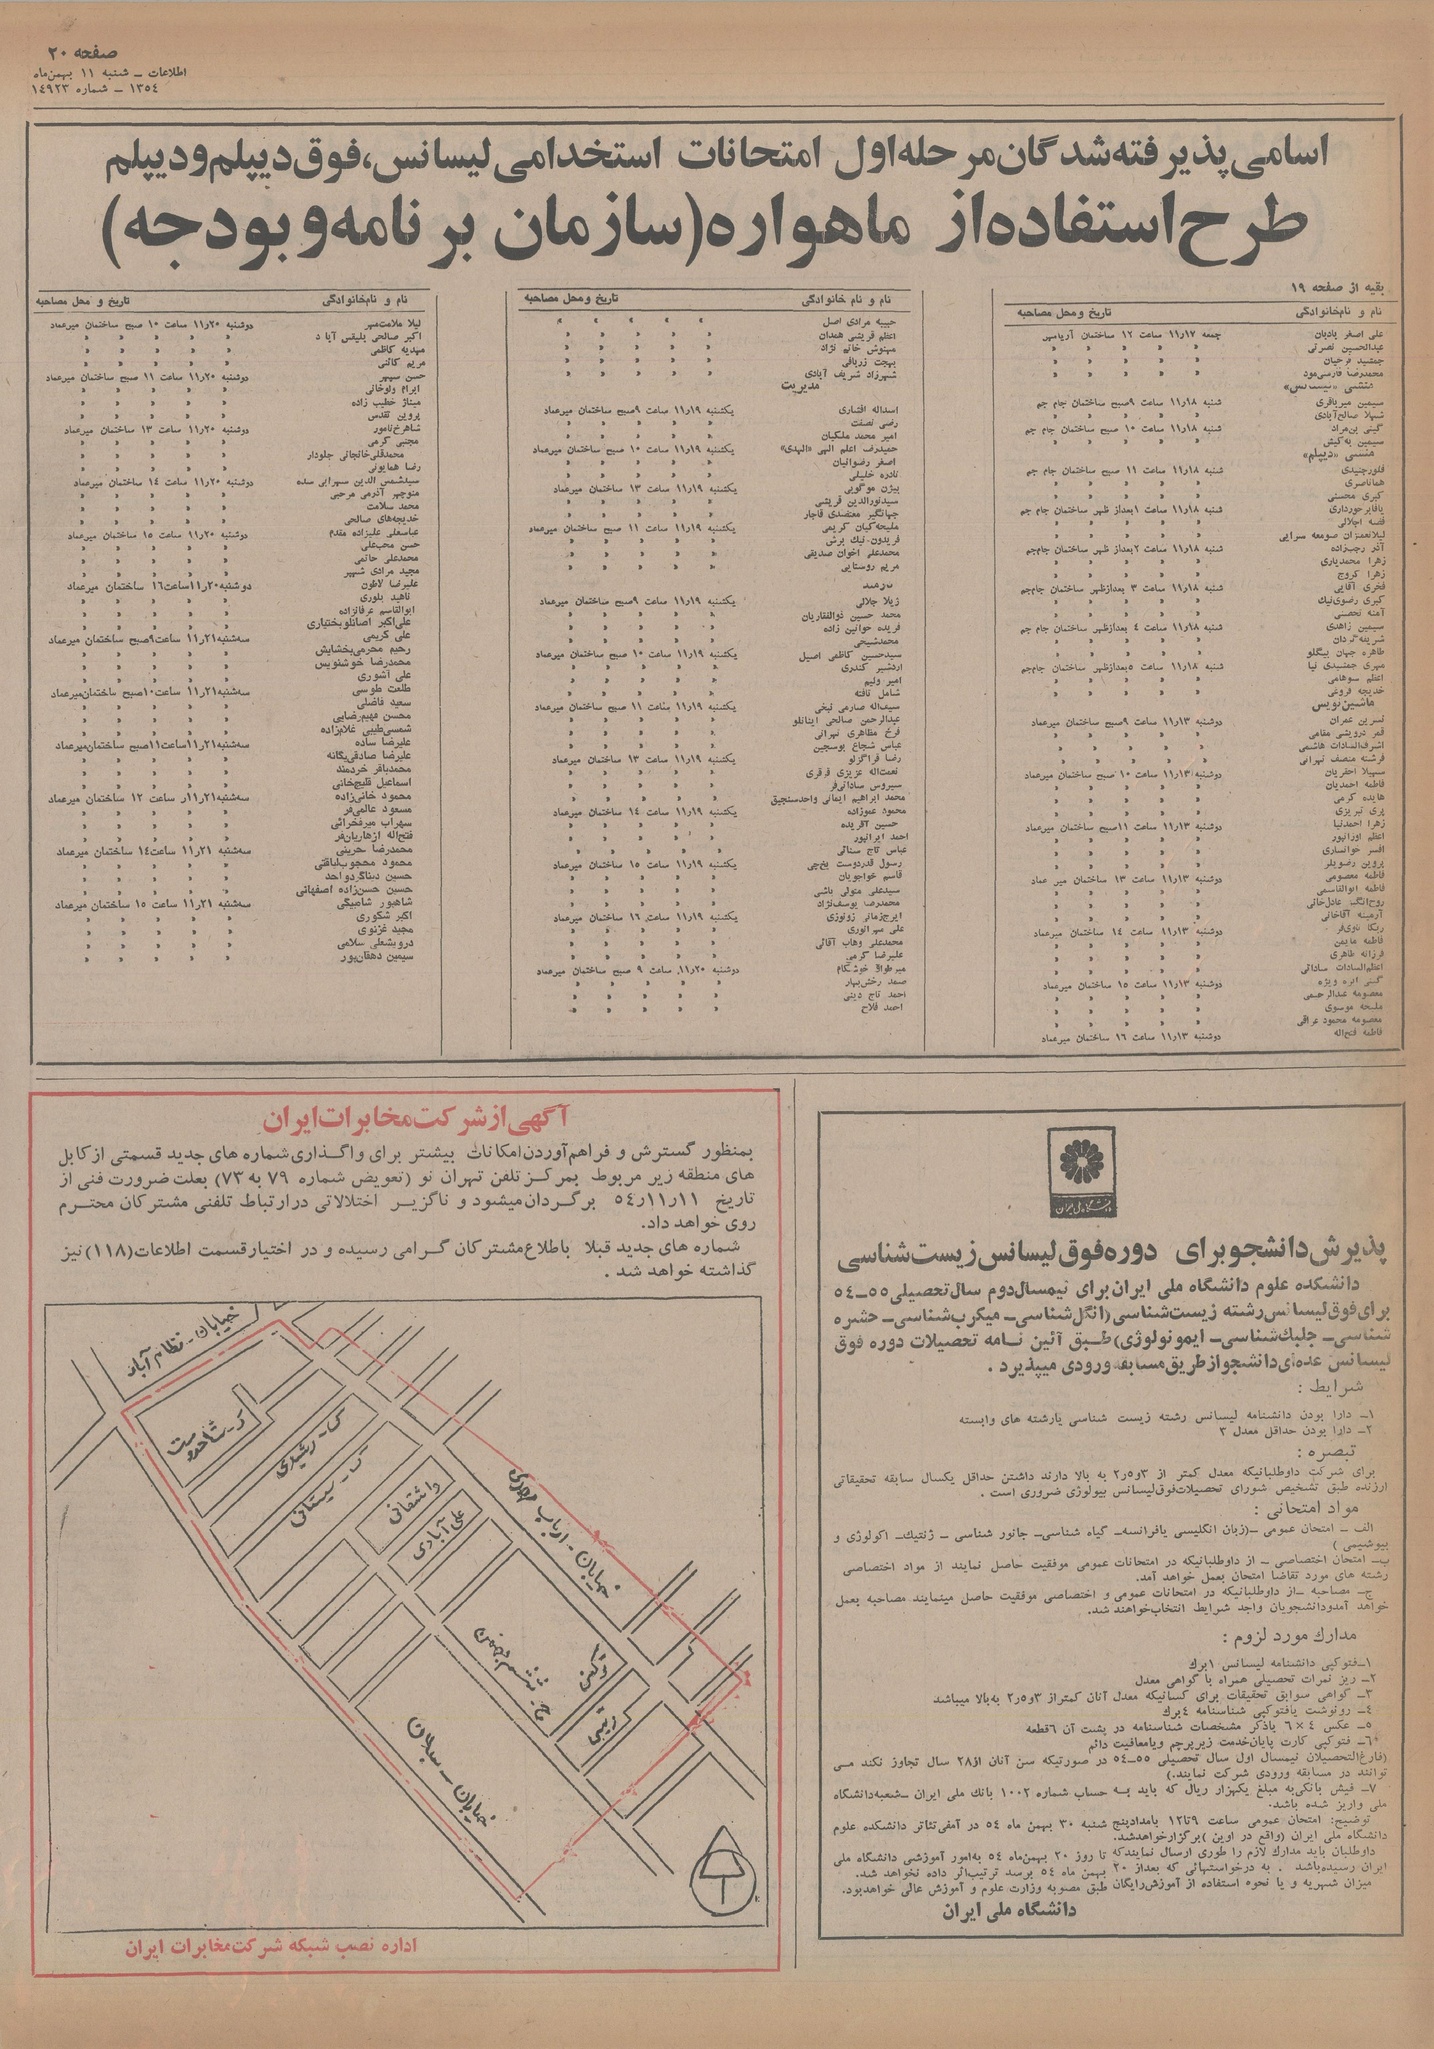 صفحه ۲۰
اطلاعات ــ شنبه ۱۱ بهمن‌ماه
۱۳۵۴ ــ شماره ۱۴۹۲۳
اسامی پذیرفته‌شدگان مرحله اول امتحانات استخدامی لیسانس، فوق دیپلم و دیپلم
طرح استفاده از ماهواره (سازمان برنامه و بودجه)
بقیه از صفحه ۱۹
نام و نام‌خانوادگی تاریخ و محل مصاحبه
علی اصغر یادیان جمعه ۱۱ر۱۷ ساعت ۱۲ ساختمان آریامهر
عبدالحسین نصرتی » » » » »
جمشید فرجیان » » » » »
محمدرضا فارسی‌مود » » » » »
منشی «لیسانس»
سیمین میرباقری شنبه ۱۱ر۱۸ ساعت ۹صبح ساختمان جام جم
شهلا صالح‌آبادی » » » » »
گیتی بن‌مراد شنبه ۱۱ر۱۸ ساعت ۱۰ صبح ساختمان جام جم
سیمین به‌کیش » » » » »
منشی «دیپلم»
فلور جنیدی شنبه ۱۱ر۱۸ ساعت ۱۱ صبح ساختمان جام جم
هما ناصری » » » » »
کبری محسنی » » » » »
شنبه ۱۱ر۱۸ ساعت ۱بعداز ظهر ساختمان جام جم
فضه اجلالی » » » » »
لیلا نعمتزان صومعه سرایی » » » » »
آذر رجب‌زاده شنبه ۱۱ر۱۸ ساعت ۲بعداز ظهر ساختمان جام‌جم
زهرا محمدیاری » » » » »
زهرا کروج » » » » »
فخری آقایی شنبه ۱۱ر۱۸ ساعت ۳ بعدازظهر ساختمان جام‌جم
کبری رضوی‌نیک » » » » »
آمنه تحصنی » » » » »
سیمین زاهدی شنبه ۱۱ر۱۸ ساعت ۴ بعدازظهر ساختمان جام جم
شریفه گردان » » » » »
طاهره جهان بیگلو » » » » »
مهری جمشیدی نیا شنبه ۱۱ر۱۸ ساعت ۵بعدازظهر ساختمان جام‌جم
اعظم سوهامی » » » » »
خدیجه فروغی » » » » »
ماشین نویس
نسرین عمران دوشنبه ۱۱ر۱۳ ساعت ۹صبح ساختمان میرعماد
قمر درویشی مقامی » » » » »
اشرف‌السادات هاشمی » » » » »
فرشته منصف تهرانی » » » » »
سهیلا احقریان دوشنبه ۱۱ر۱۳ ساعت ۱۰ صبح ساختمان میرعماد
فاطمه احمدیان » » » » »
هایده کرمی » » » » »
پری تبریزی » » » » »
زهرا احمدنیا دوشنبه ۱۱ر۱۳ ساعت ۱۱صبح ساختمان میرعماد
اعظم اورانپور » » » » »
افسر خوانساری » » » » »
پروین رضویلر » » » » »
فاطمه معصومی دوشنبه ۱۱ر۱۳ ساعت ۱۳ ساختمان میر عماد
فاطمه ابوالقاسمی » » » » »
روح‌انگیز عادل‌خانی » » » » »
آرمینه آقاخانی » » » » »
ریکا ناوی‌فر دوشنبه ۱۱ر۱۳ ساعت ۱۴ ساختمان میرعماد
فاطمه مایمن » » » » »
فرزانه طاهری » » » » »
اعظم‌السادات ساداتی » » » » »
گیتی ایزه ویژه دوشنبه ۱۱ر۱۳ ساعت ۱۵ ساختمان میرعماد
معصومه عبدالرحیمی » » » » »
ملیحه موسوی » » » » »
معصومه محمود عراقی » » » » »
فاطمه فتح‌اله دوشنبه ۱۱ر۱۳ ساعت ۱۶ ساختمان میرعماد
نام و نام خانوادگی تاریخ و محل مصاحبه
حبیبه مرادی اصل » » » » »
اعظم قریشی همدان » » » » »
مهنوش خانم نژاد » » » » »
بهجت زربافی » » » » »
شهرزاد شریف آبادی » » » » »
مدیریت
اسداله افشاری یکشنبه ۱۱ر۱۹ ساعت ۹صبح ساختمان میرعماد
رضی نصفت » » » » »
امیر محمد ملکیان » » » » »
حمیدرضا اعلم الهی «الهدی» یکشنبه ۱۱ر۱۹ ساعت ۱۰ صبح ساختمان میرعماد
اصغر رضوانیان » » » » »
نادره خلیلی » » » » »
بیژن موگویی یکشنبه ۱۱ر۱۹ ساعت ۱۳ ساختمان میرعماد
سیدنورالدین قریشی » » » » »
جهانگیر معتضدی قاجار » » » » »
ملیحه کیان کریمی یکشنبه ۱۱ر۱۹ ساعت ۱۱ صبح ساختمان میرعماد
فریدون نیک برش » » » » »
محمدعلی اخوان صدیقی » » » » »
مریم روستایی » » » » »
ژیلا جلالی یکشنبه ۱۱ر۱۹ ساعت ۹صبح ساختمان میرعماد
محمد حسین ذوالفقاریان » » » » »
فریده خوانین زاده » » » » »
محمدشیخی » » » » »
سیدحسین کاظمی اصیل یکشنبه ۱۱ر۱۹ ساعت ۱۰ صبح ساختمان میرعماد
اردشیر گندری » » » » »
امیر ولیم » » » » »
شامل تافته » » » » »
سیف‌اله صارمی نیخی یکشنبه ۱۱ر۱۹ ساعت ۱۱ صبح ساختمان میرعماد
عبدالرحمن صالحی اینانلو » » » » »
فرخ مظاهری تهرانی » » » » »
عباس شجاع یوسجین » » » » »
رضا قراگزلو یکشنبه ۱۱ر۱۹ ساعت ۱۳ ساختمان میرعماد
نعمت‌اله عزیزی قرقری » » » » »
سیروس ساداتی‌فر » » » » »
محمد ابراهیم ایمانی واحدسنجیق » » » » »
محمود عموزاده یکشنبه ۱۱ر۱۹ ساعت ۱۴ ساختمان میرعماد
حسین آفریده » » » » »
احمد ایرانپور » » » » »
عباس تاج سنائی » » » » »
رسول قدردوست یخ‌چی یکشنبه ۱۱ر۱۹ ساعت ۱۵ ساختمان میرعماد
قاسم خواجویان » » » » »
سیدعلی متولی باشی » » » » »
محمدرضا یوسف‌نژاد » » » » »
ایرج‌زمانی زنوزی یکشنبه ۱۱ر۱۹ ساعت ۱۶ ساختمان میرعماد
علی مهر انوری » » » » »
محمدعلی وهاب آقائی » » » » »
علیرضا کرمی » » » » »
دوشنبه ۱۱ر۲۰ ساعت ۹ صبح ساختمان میرعماد
صمد رخش‌بهار » » » » »
احمد تاج دینی » » » » »
احمد فلاح » » » » »
نام و نام‌خانوادگی تاریخ و محل مصاحبه
لیلا ملامت‌مهر دوشنبه ۱۱ر۲۰ ساعت ۱۰ صبح ساختمان میرعماد
اکبر صالحی بلیقیس آباد » » » » »
مهدیه کاظمی » » » » »
مریم کائنی » » » » »
حسن سپهر دوشنبه ۱۱ر۲۰ ساعت ۱۱ صبح ساختمان میرعماد
ابرام ولوخانی » » » » »
میناژ خطیب زاده » » » » »
پروین تقدس » » » » »
شاهرخ‌نامور دوشنبه ۱۱ر۲۰ ساعت ۱۳ ساختمان میرعماد
مجتبی گرمی » » » » »
محمدقلی‌خانجانی جلودار » » » » »
رضا همایونی » » » » »
سیدشمس الدین سهرابی سده دوشنبه ۱۱ر۲۰ ساعت ۱۴ ساختمان میرعماد
منوچهر آذرمی مرحبی » » » » »
محمد سلامت » » » » »
خدیجه‌های صالحی » » » » »
عباسعلی علیزاده مقدم دوشنبه ۱۱ر۲۰ ساعت ۱۵ ساختمان میرعماد
حسن محب‌علی » » » » »
محمدعلی حاتمی » » » » »
مجید مرادی شهپر » » » » »
علیرضا لاطون دوشنبه ۱۱ر۲۰ ساعت ۱۶ ساختمان میرعماد
ناهید بلوری » » » » »
ابوالقاسم عرفانزاده » » » » »
علی‌اکبر اصانلوبختیاری » » » » »
علی کریمی سه‌شنبه ۱۱ر۲۱ ساعت ۹صبح ساختمان میرعماد
رحیم محرمی‌بخشایش » » » » »
محمدرضا خوشنویس » » » » »
علی آشوری » » » » »
طلعت طوسی سه‌شنبه ۱۱ر۲۱ ساعت ۱۰صبح ساختمان میرعماد
سعید فاضلی » » » » »
محسن فهیم‌رضایی » » » » »
شمسی‌طیبی غلام‌زاده » » » » »
علیرضا ساده سه‌شنبه ۱۱ر۲۱ ساعت ۱۱صبح ساختمان میرعماد
علیرضا صادقی‌یگانه » » » » »
محمدباقر خردمند » » » » »
اسماعیل قلیچ‌خانی » » » » »
محمود خانی‌زاده سه‌شنبه ۱۱ر۲۱ ساعت ۱۲ ساختمان میرعماد
مسعود عالمی‌فر » » » » »
سهراب میرفخرائی » » » » »
فتح‌اله ازهاریان‌فر » » » » »
محمدرضا حریتی سه‌شنبه ۱۱ر۲۱ ساعت ۱۴ ساختمان میرعماد
محمود محجوب‌لیاقتی » » » » »
حسین دیناگردواحد » » » » »
حسین حسن‌زاده اصفهانی » » » » »
شاهپور شاهبیگی سه‌شنبه ۱۱ر۲۱ ساعت ۱۵ ساختمان میرعماد
اکبر شکوری » » » » »
مجید غزنوی » » » » »
درویشعلی سلامی » » » » »
سیمین دهقان‌پور » » » » »
دانشگاه ملی ایران
پذیرش دانشجو برای دوره فوق لیسانس زیست شناسی
دانشکده علوم دانشگاه ملی ایران برای نیمسال دوم سال تحصیلی ۵۵ــ۵۴
برای فوق لیسانس رشته زیست شناسی (انگل شناسی ــ میکرب شناسی ــ حشره
شناسی ــ جلبك شناسی ــ ایمونولوژی) طبق آئین نامه تحصیلات دوره فوق
لیسانس عده‌ای دانشجو از طریق مسابقه ورودی میپذیرد .
شرایط :
۱ــ دارا بودن دانشنامه لیسانس رشته زیست شناسی یارشته های وابسته
۲ــ دارا بودن حداقل معدل ۳
تبصره :
برای شرکت داوطلبانیکه معدل کمتر از ۳ و ۲ر۵ به بالا دارند داشتن حداقل یکسال سابقه تحقیقاتی
ارزنده طبق تشخیص شورای تحصیلات فوق‌لیسانس بیولوژی ضروری است .
مواد امتحانی :
الف ــ امتحان عمومی ــ(زبان انگلیسی یافرانسه ــ گیاه شناسی ــ جانور شناسی ــ ژنتیك ــ اکولوژی و
بیوشیمی )
ب ــ امتحان اختصاصی ــ از داوطلبانیکه در امتحانات عمومی موفقیت حاصل نمایند از مواد اختصاصی
رشته های مورد تقاضا امتحان بعمل خواهد آمد.
ج ــ مصاحبه ــ از داوطلبانیکه در امتحانات عمومی و اختصاصی موفقیت حاصل مینمایند مصاحبه بعمل
خواهد آمدودانشجویان واجد شرایط انتخاب خواهند شد.
مدارك مورد لزوم :
۱ــ فتوکپی دانشنامه لیسانس ۱برك
۲ــ ریز نمرات تحصیلی همراه با گواهی معدل
۳ــ گواهی سوابق تحقیقات برای کسانیکه معدل آنان کمتراز ۳ و ۲ر۵ به‌بالا میباشد
۴ــ رونوشت یافتوکپی شناسنامه ۴برك
۵ــ عکس ۴ × ۶ باذکر مشخصات شناسنامه در پشت آن ۶قطعه
۶ــ فتوکپی کارت پایان‌خدمت زیرپرچم ویامعافیت دائم
(فارغ‌التحصیلان نیمسال اول سال تحصیلی ۵۵ــ۵۴ در صورتیکه سن آنان از۲۸ سال تجاوز نکند مــی
توانند در مسابقه ورودی شرکت نمایند.)
۷ــ فیش بانکی‌به مبلغ یکهزار ریال که باید بــه حساب شماره ۱۰۰۲ بانك ملی ایران ــشعبه‌دانشگاه
ملی واریز شده باشد.
توضیح: امتحان عمومی ساعت ۹تا۱۲ بامدادپنج شنبه ۳۰ بهمن ماه ۵۴ در آمفی‌تئاتر دانشکده علوم
دانشگاه ملی ایران (واقع در اوین )برگزارخواهدشد.
داوطلبان باید مدارك لازم را طوری ارسال نمایندکه تا روز ۲۰ بهمن‌ماه ۵۴ به‌امور آموزشی دانشگاه ملی
ایران رسیده‌باشد . به درخواستهائی که بعداز ۲۰ بهمن ماه ۵۴ برسد ترتیب‌اثر داده نخواهد شد.
میزان شهریه و یا نحوه استفاده از آموزش‌رایگان طبق مصوبه وزارت علوم و آموزش عالی خواهدبود.
دانشگاه ملی ایران
آگهی از شرکت مخابرات ایران
بمنظور گسترش و فراهم آوردن امکانات بیشتر برای واگــذاری شماره های جدید قسمتی از کابل
های منطقه زیر مربوط بمرکز تلفن تهران نو (تعویض شماره ۷۹ به ۷۳) بعلت ضرورت فنی از
تاریخ ۱۱ر۱۱ر۵۴ برگردان میشود و ناگزیـر اختلالاتی درارتباط تلفنی مشترکان محتـرم
روی خواهد داد.
شماره های جدید قبلا باطلاع مشترکان گـرامی رسیده و در اختیار قسمت اطلاعات (۱۱۸) نیز
گذاشته خواهد شد .
خیابان ــ نظام آباد
ك ــ رشیدی
ك ــ سیستانی
واشقانی
علی آبادی
خیابان ــ ارباب مهدی
خیابان ــ سبلان
اداره نصب شبکه شرکت مخابرات ایران